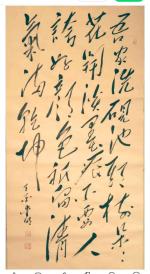 吾家洗硯池頭樹
花開淡墨痕不要人
誇好顏色祇留清
氣滿乾坤